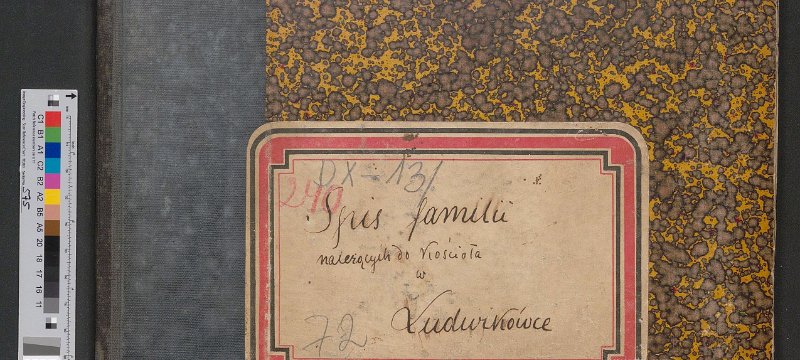 DX-131
290
Spis familii
należących do Kościoła
w
Ludwikówce
72
C1 B1 A1 C2 B2 A2 B5 A5 20 18 17 16 11
575